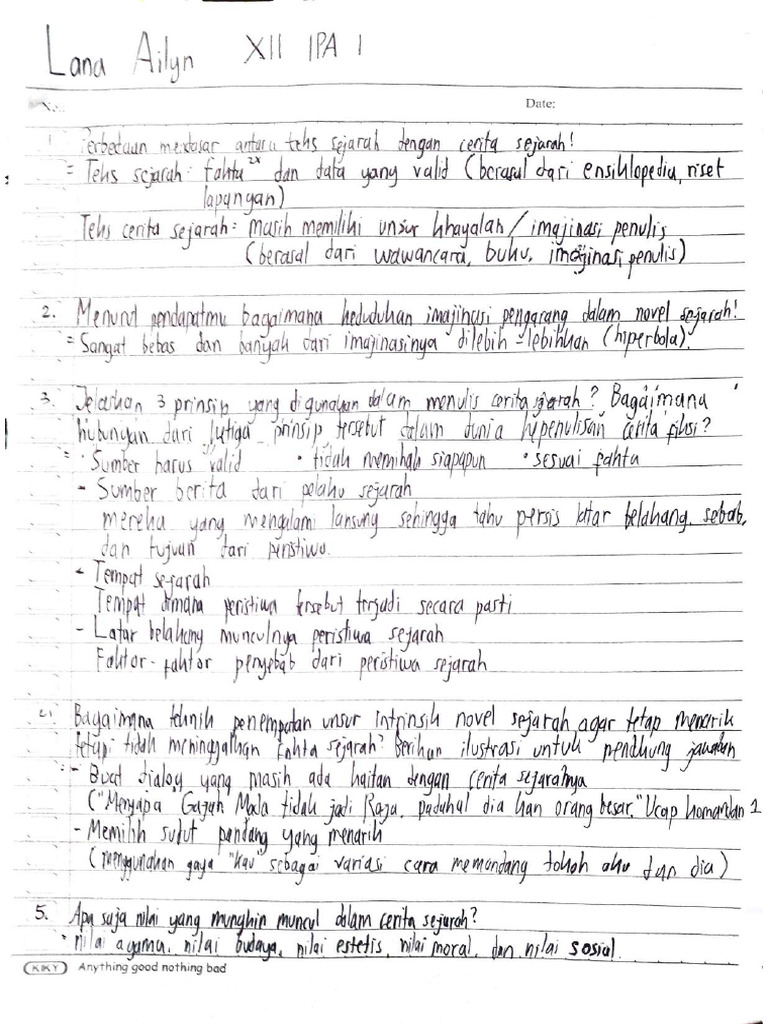 Lana Ailyn XII IPA 1
No.:
Date:
1. Perbedaan mendasar antara teks sejarah dengan cerita sejarah!
= Teks sejarah : fakta 2x dan data yang valid (berasal dari ensiklopedia, riset
lapangan)
Teks cerita sejarah = masih memiliki unsur khayalan / imajinasi penulis
(berasal dari wawancara, buku, imajinasi penulis)
2. Menurut pendapatmu bagaimana kedudukan imajinasi pengarang dalam novel sejarah!
= Sangat bebas dan banyak dari imajinasinya dilebih-lebihkan (hiperbola).
3. Jelaskan 3 prinsip yang digunakan dalam menulis cerita sjarah? Bagaimana
hubungan dari ketiga prinsip tersebut dalam dunia kepenulisan cerita fiksi?
= • Sumber harus valid • tidak memihak siapapun • sesuai fakta
- Sumber berita dari pelaku sejarah
mereka yang mengalami lansung sehingga tahu persis latar belakang, sebab,
dan tujuan dari peristiwa.
- Tempat sejarah
Tempat dimana peristiwa tersebut terjadi secara pasti
- Latar belakang munculnya peristiwa sejarah
Faktor-faktor penyebab dari peristiwa sejarah
4. Bagaimana teknik penempatan unsur intrinsik novel sejarah agar tetap menarik
tetapi tidak meninggalkan fakta sejarah? Berikan ilustrasi untuk pendkung jawaban
= - Buat dialog yang masih ada kaitan dengan cerita sejarahnya
("Mengapa Gajah Mada tidak jadi Raja, padahal dia kan orang besar," Ucap komandan 1
- Memilih sudut pandang yang menarik
(menggunakan gaya "kau" sebagai variasi cara memandang tokoh aku dan dia)
5. Apa saja nilai yang mungkin muncul dalam cerita sejarah?
• nilai agama, nilai budaya, nilai estetis, nilai moral, dan nilai sosial
KIKY Anything good nothing bad